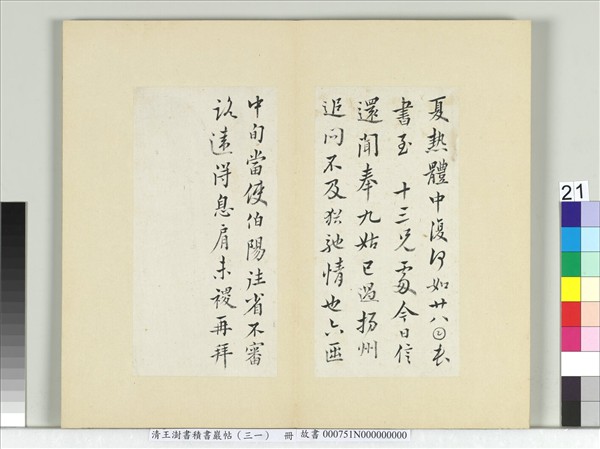 夏熱體中復何如廿八𡆠長
書至 十三兄處今日信
還聞奉九姑已過揚州
追問不及馳情也六
中旬當使伯陽往省不審
路遠得息肩未稷再拜
清王澍書積書巖帖（三一） 冊 故書 000751N000000000
21